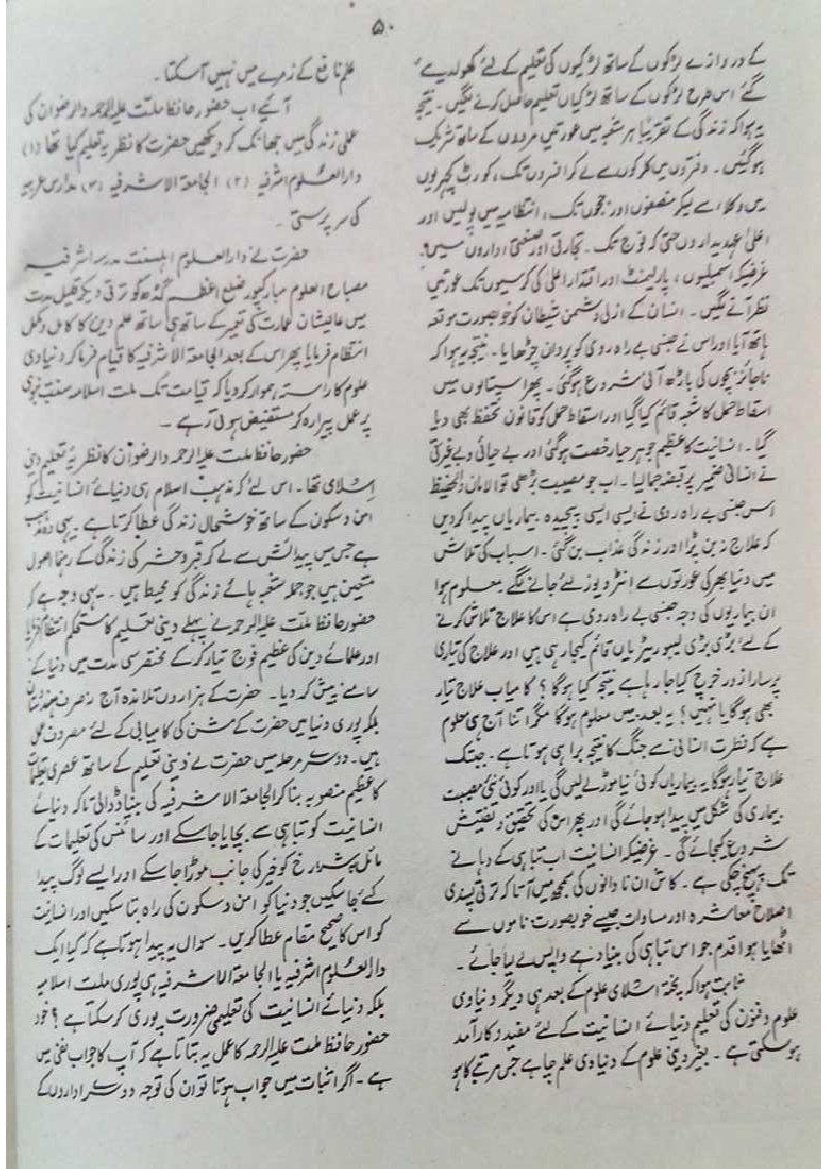 ۵۰
کے دروازے لڑکوں کے ساتھ لڑکیوں کی تعلیم کے لئے کھول دیے
گئے اس طرح لڑکوں کے ساتھ لڑکیاں تعلیم حاصل کرنے لگیں۔ نتیجہ
یہ ہوا کہ زندگی کے تقریباً ہر شعبہ میں عورتیں مردوں کے ساتھ شریک
ہوگئیں۔ دفتروں میں کلرکوں سے لے کر افسروں تک، کورٹ کچہریوں
میں وکلاء سے لیکر منصفوں اور ججوں تک، انتظامیہ میں پولیس اور
اعلیٰ عہدیداروں حتی کہ فوج تک۔ تجارتی اور صنعتی اداروں میں۔
غرضیکہ اسمبلیوں، پارلیمنٹ اور اقتدار اعلیٰ کی کرسیوں تک عورتیں
نظر آنے لگیں۔ انسان کے ازلی دشمن شیطان کو خوبصورت موقعہ
ہاتھ آیا اور اس نے جنسی بے راہ روی کو پروان چڑھایا۔ نتیجہ یہ ہوا کہ
ناجائز بچوں کی باڑھ آنی شروع ہوگئی۔ پھر اسپتالوں میں
اسقاط حمل کا شعبہ قائم کیا گیا اور اسقاط حمل کو قانونی تحفظ بھی دیا
گیا۔ انسانیت کا عظیم جوہر حیا رخصت ہوگئی اور بے حیائی و بے غیرتی
نے انسانی ضمیر پر قبضہ جمالیا۔ اب جو مصیبت بڑھی تو الامان والحفیظ
اس جنسی بے راہ روی نے ایسی ایسی پیچیدہ بیماریاں پیدا کردیں
کہ علاج نہ بن پڑا اور زندگی عذاب بن گئی۔ اسباب کی تلاش
میں دنیا بھر کی عورتوں سے انٹرویوز لئے جانے لگے معلوم ہوا
ان بیماریوں کی وجہ جنسی بے راہ روی ہے اس کا علاج تلاش کرنے
کے لئے بڑی بڑی لیبوریٹریاں قائم کیجارہی ہیں اور علاج کی تیاری
پر سارا زور خرچ کیا جارہا ہے نتیجہ کیا ہوگا؟ کامیاب علاج تیار
بھی ہوگا یا نہیں؟ یہ بعد میں معلوم ہوگا مگر اتنا آج ہی معلوم
ہے کہ فطرت انسانی سے جنگ کا نتیجہ برا ہی ہوتا ہے۔ جبتک
علاج تیار ہوگا یہ بیماریاں کوئی نیا موڑ لے لیں گی یا اور کوئی نئی مصیبت
بیماری کی شکل میں پیدا ہوجائے گی اور پھر اس کی تحقیق و تفتیش
شروع کیجائے گی۔ غرضیکہ انسانیت اب تباہی کے دہانے
تک پہنچ چکی ہے۔ کاش ان نادانوں کی سمجھ میں آتا کہ ترقی پسندی
اصلاح معاشرہ اور مساوات جیسے خوبصورت ناموں سے
اٹھایا ہوا قدم جو اس تباہی کی بنیاد ہے واپس لے لیا جائے۔
ثابت ہوا کہ پختہ اسلامی علوم کے بعد ہی دیگر دنیاوی
علوم و فنون کی تعلیم دنیائے انسانیت کے لئے مفید و کارآمد
ہوسکتی ہے۔ بغیر دینی علوم کے دنیاوی علم چاہے جس مرتبے کا ہو
علم نافع کے زمرے میں نہیں آسکتا۔
آئیے اب حضور حافظ ملت علیہ الرحمہ والرضوان کی
عملی زندگی میں جھانک کر دیکھیں حضرت کا نظریہ تعلیم کیا تھا (۱)
دارالعلوم اشرفیہ (۲) الجامعۃ الاشرفیہ (۳) مدارس عربیہ
کی سرپرستی۔
حضرت نے دارالعلوم اہلسنت مدرسہ اشرفیہ
مصباح العلوم مبارکپور ضلع اعظم گڈھ کو ترقی دیکر قلیل مدت
میں عالیشان عمارت کی تعمیر کے ساتھ ہی ساتھ علم دین کا کامل و مکمل
انتظام فرمایا پھر اس کے بعد الجامعۃ الاشرفیہ کا قیام فرما کر دنیاوی
علوم کا راستہ ہموار کردیا کہ قیامت تک ملت اسلامیہ سنت نبوی
پر عمل پیرا رہ کر مستفیض ہوتی رہے۔
حضور حافظ ملت علیہ الرحمہ والرضوان کا نظریہ تعلیم دینی
اسلامی تھا۔ اس لئے کہ مذہب اسلام ہی دنیائے انسانیت کو
امن و سکون کے ساتھ خوشحال زندگی عطا کرتا ہے۔ یہی وہ مذہب
ہے جس میں پیدائش سے لے کر قبر و حشر کی زندگی کے رہنما اصول
متعین ہیں جو جملہ شعبہ ہائے زندگی کو محیط ہیں۔ یہی وجہ ہے کہ
حضور حافظ ملت علیہ الرحمہ نے پہلے دینی تعلیم کا مستحکم انتظام فرمایا
اور علمائے دین کی عظیم فوج تیار کرکے مختصر سی مدت میں دنیا کے
سامنے پیش کردیا۔ حضرت کے ہزاروں تلامذہ آج نہ صرف ہندوستان
بلکہ پوری دنیا میں حضرت کے مشن کی کامیابی کے لئے مصروف عمل
ہیں۔ دوسرے مرحلہ میں حضرت نے دینی تعلیم کے ساتھ عصری تعلیمات
کا عظیم منصوبہ بنا کر الجامعۃ الاشرفیہ کی بنیاد ڈالی تاکہ دنیائے
انسانیت کو تباہی سے بچایا جاسکے اور سائنس کی تعلیمات کے
مائل بہ شر رخ کو خیر کی جانب موڑا جاسکے اور ایسے لوگ پیدا
کئے جاسکیں جو دنیا کو امن و سکون کی راہ بتا سکیں اور انسانیت
کو اس کا صحیح مقام عطا کریں۔ سوال یہ پیدا ہوتا ہے کہ کیا ایک
دارالعلوم اشرفیہ یا الجامعۃ الاشرفیہ ہی پوری ملت اسلامیہ
بلکہ دنیائے انسانیت کی تعلیمی ضرورت پوری کرسکتا ہے؟ خود
حضور حافظ ملت علیہ الرحمہ کا عمل یہ بتاتا ہے کہ آپ کا جواب نفی میں
ہے۔ اگر اثبات میں جواب ہوتا تو ان کی توجہ دوسرے اداروں کے